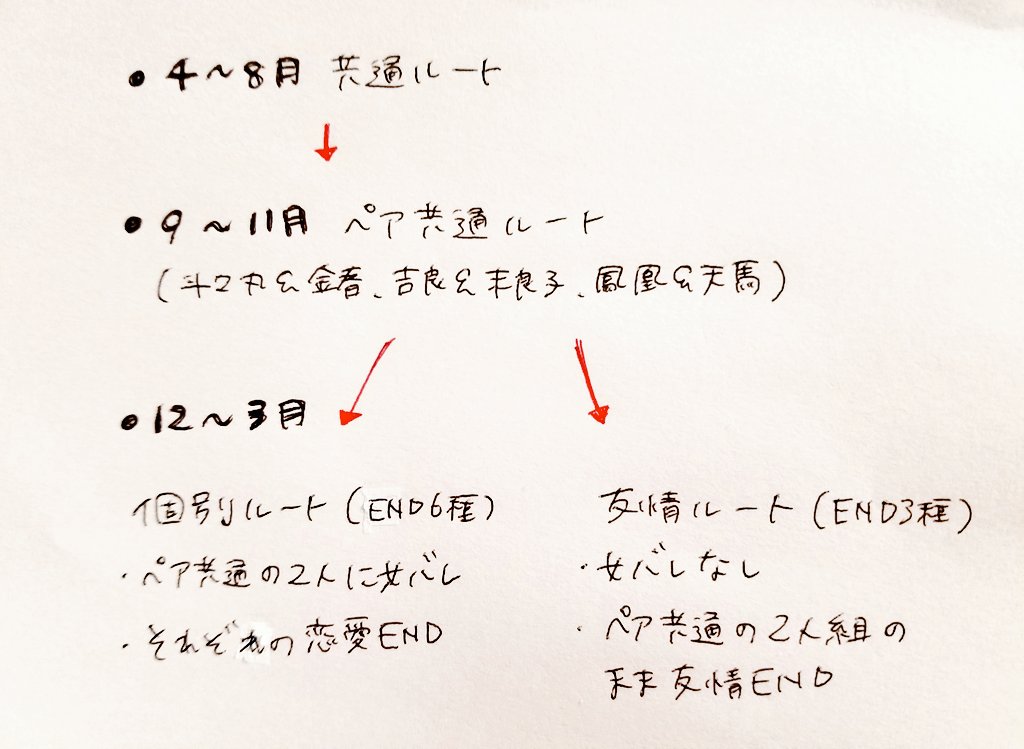 ● 4～8月 共通ルート
● 9～11月 ペア共通ルート
(斗マ丸&金春、吉良&末良子、鳳凰&天馬)
● 12～3月
個別ルート(END6種)
・ペア共通の2人に女バレ
・それぞれの恋愛END
友情ルート(END3種)
・女バレなし
・ペア共通の2人組の
まま友情END